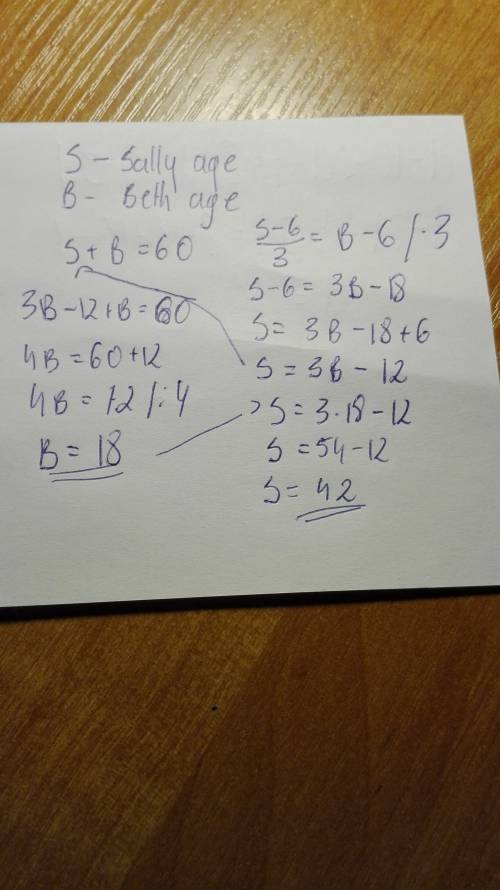 S – Sally age
B – Beth age
S + B = 60
3B – 12 + B = 60
4B = 60 + 12
4B = 72 / : 4
B = 18
S-6/3 = B – 6 / · 3
S – 6 = 3B – 18
S = 3B – 18 + 6
S = 3B – 12
S = 3 · 18 – 12
S = 54 – 12
S = 42